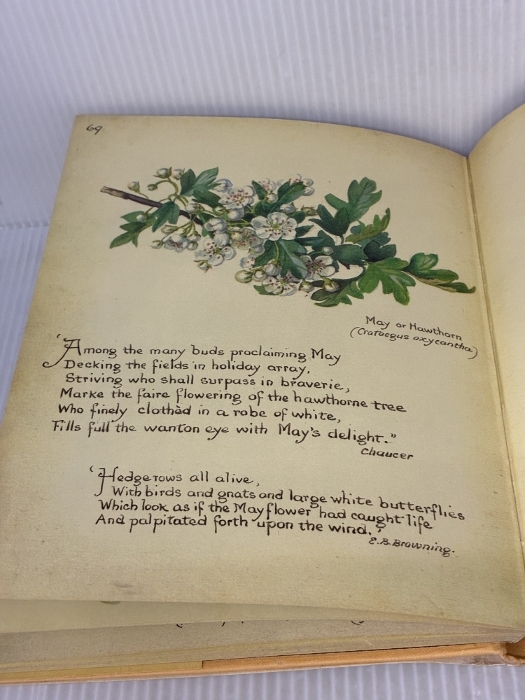 69
May or Hawthorn
(Crataegus oxycantha)
'Among the many buds proclaiming May
Decking the fields in holiday array,
Striving who shall surpass in braverie,
Marke the faire flowering of the hawthorne tree
Who finely clothèd in a robe of white,
Fills full the wanton eye with May's delight."
Chaucer
'Hedgerows all alive,
With birds and gnats and large white butterflies
Which look as if the Mayflower had caught life
And palpitated forth upon the wind.'
E.B.Browning.